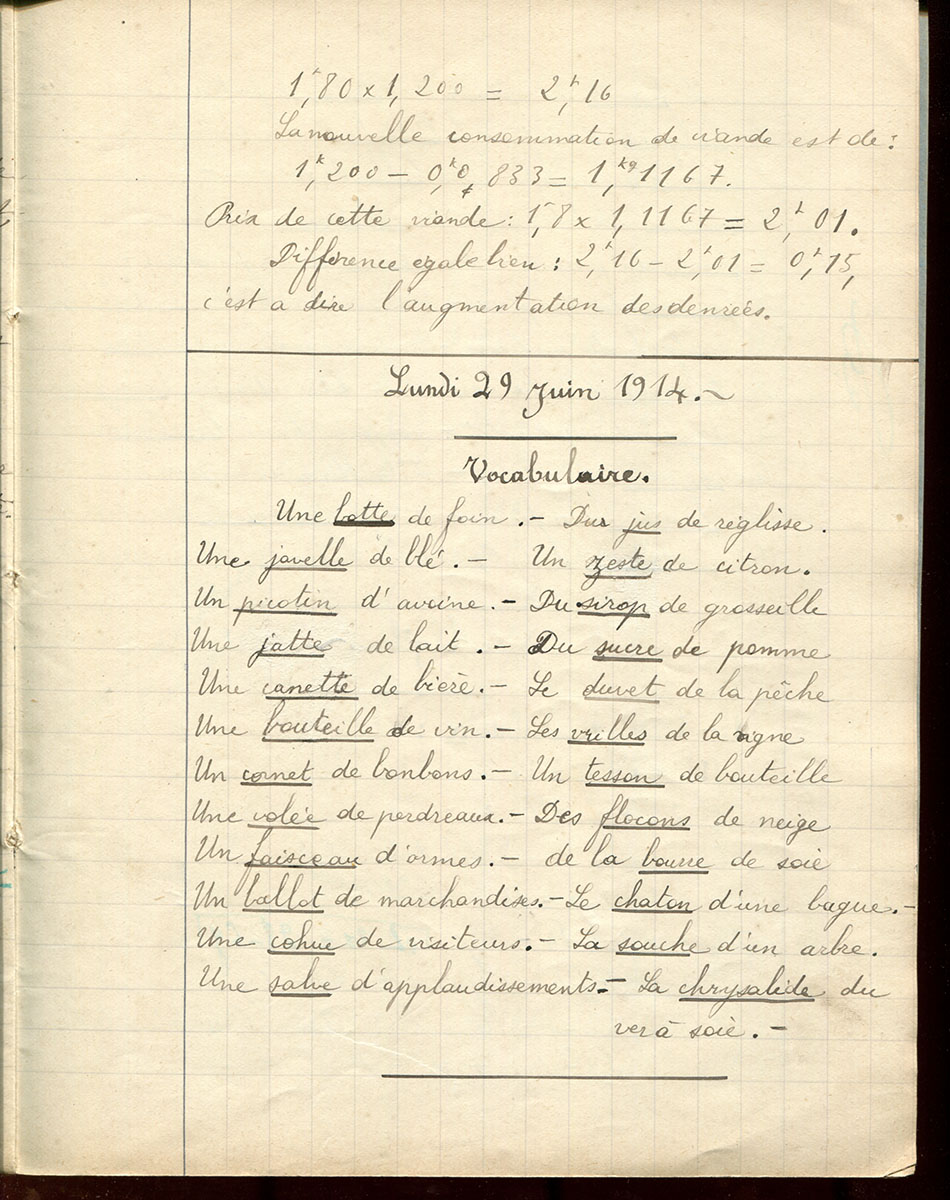 1,ᶠ80 x 1,200 = 2,ᶠ16
La nouvelle consommation de viande est de :
1,ᵏ200 - 0,ᵏ0,833 = 1,ᵏᵍ1167.
Prix de cette viande : 1,ᶠ8 x 1,1167 = 2,ᶠ01.
Différence égale bien : 2,ᶠ16 - 2,ᶠ01 = 0,ᶠ15,
c'est a dire l'augmentation des denrées.
Lundi 29 Juin 1914.~
Vocabulaire.
Une botte de foin. - Du jus de réglisse.
Une javelle de blé. - Un zeste de citron.
Un picotin d'avoine. - Du sirop de grosseille
Une jatte de lait. - Du sucre de pomme
Une canette de bière. - Le duvet de la pêche
Une bouteille de vin. - Les vrilles de la vigne
Un cornet de bonbons. - Un tesson de bouteille
Une volée de perdreaux. - Des flocons de neige
Un faisceau d'armes. - de la bourre de soie
Un ballot de marchandises. - Le chaton d'une bague. -
Une cohue de visiteurs. - La souche d'un arbre.
Une salve d'applaudissements. - La chrysalide du
ver à soie. -